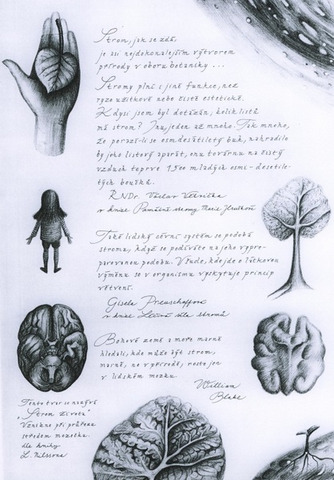 Strom, jak se zdá,
je asi nejdokonalejším výtvorem
přírody v oboru botaniky ...
Stromy plní i jiné funkce, než
ryze užitkové nebo čistě estetické.
Kdysi jsem byl dotázán, kolik listů
má strom? Inu, jeden až mnoho. Tak mnoho,
že porazí-li se osmdesátiletý buk, nahradilo
by jeho listový aparát, onu továrnu na čistý
vzduch teprve 1500 mladých osmi - desetile-
tých bouků.
RNDr. Václav Větvička
v knize Památné stromy Marie Hruškové
Také lidský cévní systém se podobá
stromu, když se podíváte na jeho vypre-
parovanou podobu. Všude, kde jde o látkovou
výměnu se v organismu vyskytuje princip
větvení.
Gisela
v knize Léčivá síla stromů
Bohové země a moře marně
hledali, kde může být strom,
marně, ne v přírodě, roste jen
v lidském mozku.
William
Blake
Tento tvar se nazývá
"Strom života"
Vznikne při průřezu
středem mozečku.
dle knihy
L.